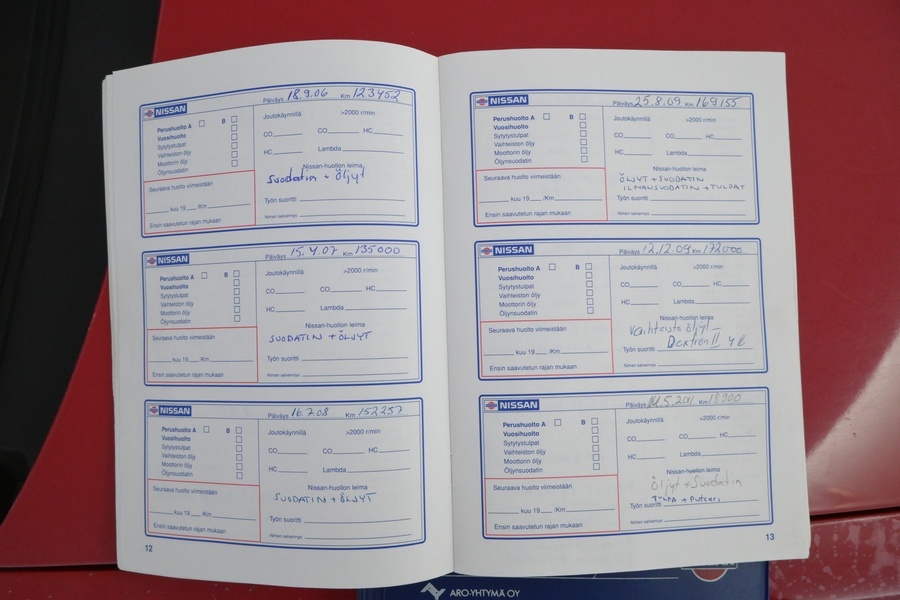 NISSAN
Päiväys 18.9.06 Km 123452
Perushuolto A B
Vuosihuolto
Sytytystulpat
Vaihteiston öljy
Moottorin öljy
Öljynsuodatin
Joutokäynnillä >2000 r/min
CO CO HC
HC Lambda
Nissan-huollon leima
Suodatin + Öljyt
Seuraava huolto viimeistään
kuu 19 /Km
Ensin saavutetun rajan mukaan
Työn suoritti
Nimen selvennys
NISSAN
Päiväys 15.4.07 Km 135000
Perushuolto A B
Vuosihuolto
Sytytystulpat
Vaihteiston öljy
Moottorin öljy
Öljynsuodatin
Joutokäynnillä >2000 r/min
CO CO HC
HC Lambda
Nissan-huollon leima
SUODATIN + ÖLJYT
Seuraava huolto viimeistään
kuu 19 /Km
Ensin saavutetun rajan mukaan
Työn suoritti
Nimen selvennys
NISSAN
Päiväys 16.7.08 Km 152257
Perushuolto A B
Vuosihuolto
Sytytystulpat
Vaihteiston öljy
Moottorin öljy
Öljynsuodatin
Joutokäynnillä >2000 r/min
CO CO HC
HC Lambda
Nissan-huollon leima
SUODATIN + ÖLJYT
Seuraava huolto viimeistään
kuu 19 /Km
Ensin saavutetun rajan mukaan
Työn suoritti
Nimen selvennys
12
NISSAN
Päiväys 25.8.09 Km 169155
Perushuolto A B
Vuosihuolto
Sytytystulpat
Vaihteiston öljy
Moottorin öljy
Öljynsuodatin
Joutokäynnillä >2000 r/min
CO CO HC
HC Lambda
Nissan-huollon leima
ÖLJYT + SUODATIN
ILMANSUODATIN + TULPAT
Seuraava huolto viimeistään
kuu 19 /Km
Ensin saavutetun rajan mukaan
Työn suoritti
Nimen selvennys
NISSAN
Päiväys 12.12.09 Km 172000
Perushuolto A B
Vuosihuolto
Sytytystulpat
Vaihteiston öljy
Moottorin öljy
Öljynsuodatin
Joutokäynnillä >2000 r/min
CO CO HC
HC Lambda
Nissan-huollon leima
Vaihteisto öljyt –
Dextron II 4 l
Seuraava huolto viimeistään
kuu 19 /Km
Ensin saavutetun rajan mukaan
Työn suoritti
Nimen selvennys
NISSAN
Päiväys Km
Perushuolto A B
Vuosihuolto
Sytytystulpat
Vaihteiston öljy
Moottorin öljy
Öljynsuodatin
Joutokäynnillä >2000 r/min
CO CO HC
HC Lambda
Nissan-huollon leima
Öljyt + Suodatin
Seuraava huolto viimeistään
kuu 19 /Km
Ensin saavutetun rajan mukaan
Työn suoritti
Nimen selvennys
13
ARO-YHTYMÄ OY